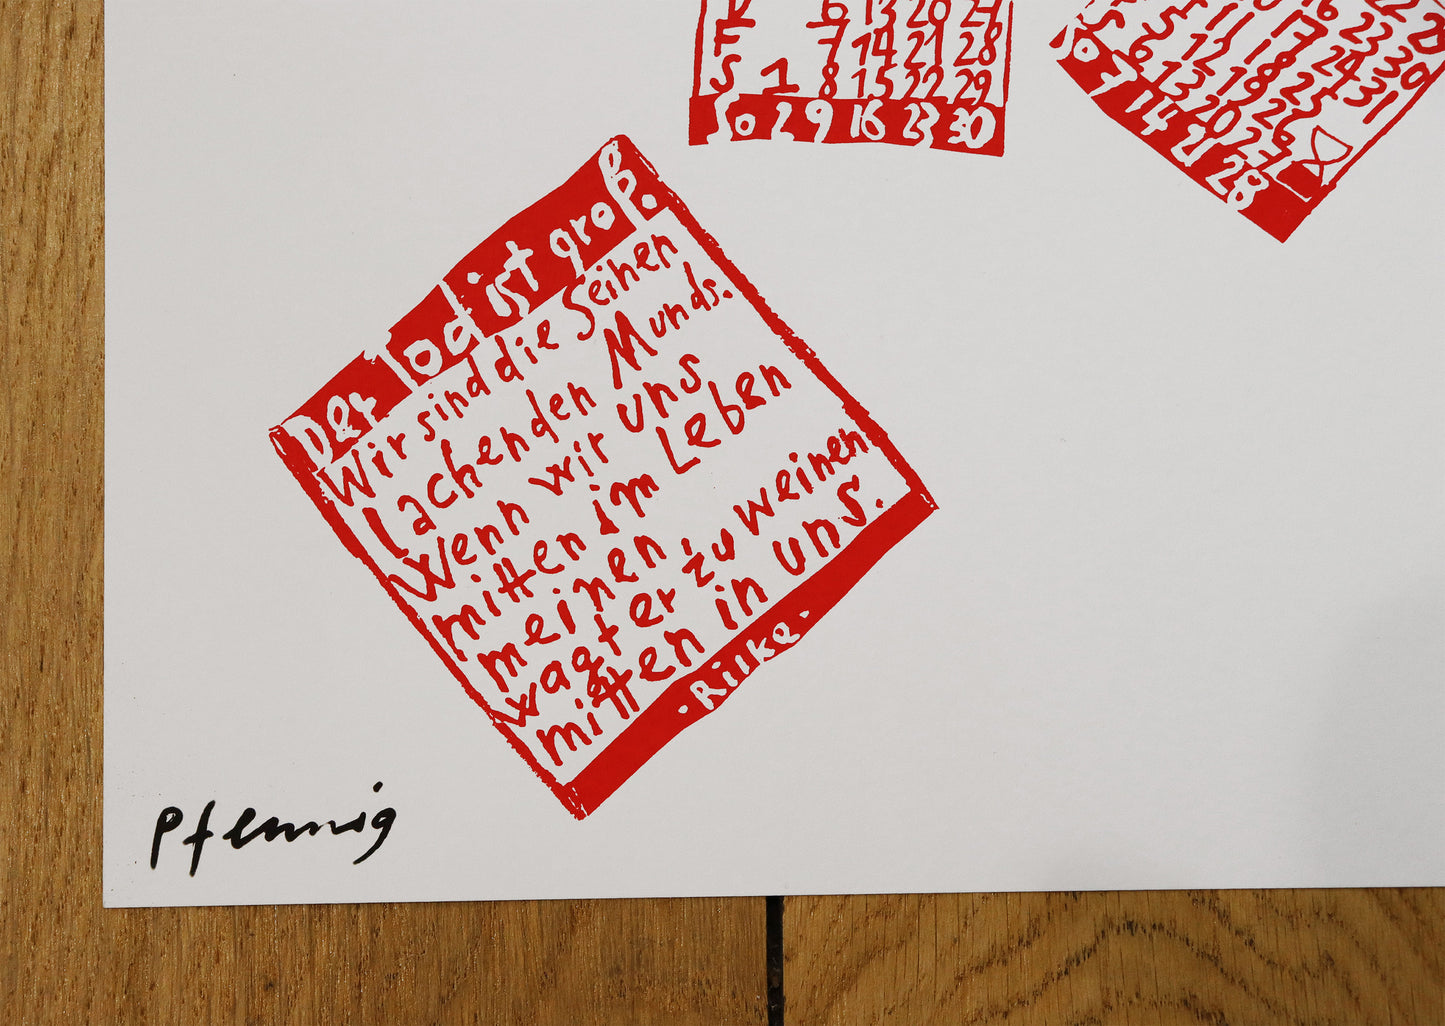 6 13 20 27
F 7 14 21 28
S 1 8 15 22 29
So 2 9 16 23 30
22 29
16 23 30
17 24 31
11 18 25
5 12 19 26
S 6 13 20 27
So 7 14 21 28
Der Tod ist groß.
Wir sind die Seinen
lachenden Munds.
Wenn wir uns
mitten im Leben
meinen,
wagt er zu weinen
mitten in uns.
· Rilke ·
Pfennig